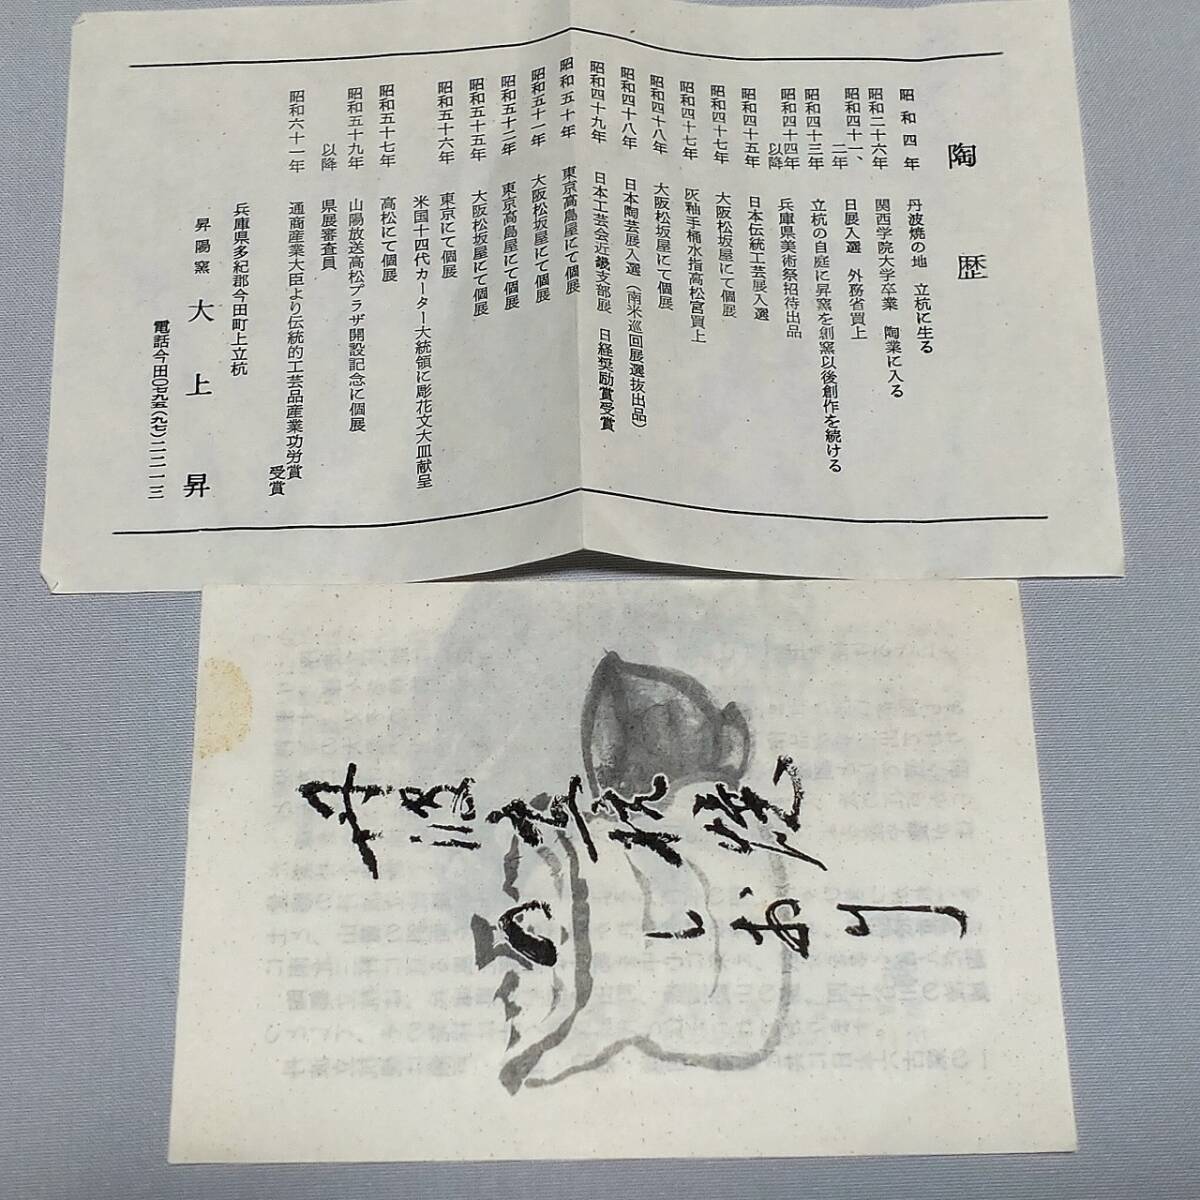 陶歴
昭和四年 丹波焼の地 立杭に生る
昭和二十六年 関西学院大学卒業 陶業に入る
昭和四十一、二年 日展入選 外務省買上
昭和四十三年 立杭の自庭に昇窯を創窯以後創作を続ける
昭和四十四年以降 兵庫県美術祭招待出品
昭和四十五年 日本伝統工芸展入選
昭和四十七年 大阪松坂屋にて個展
昭和四十七年 灰釉手桶水指高松宮買上
昭和四十八年 大阪松坂屋にて個展
昭和四十八年 日本陶芸展入選(南米巡回展選抜出品)
昭和四十九年 日本工芸会近畿支部展 日経奨励賞受賞
昭和五十年 東京高島屋にて個展
昭和五十一年 大阪松坂屋にて個展
昭和五十二年 東京高島屋にて個展
昭和五十五年 大阪松坂屋にて個展
昭和五十六年 東京にて個展
米国十四代カーター大統領に彫花文大皿献呈
昭和五十七年 高松にて個展
昭和五十九年 山陽放送高松プラザ開設記念に個展
以降 県展審査員
昭和六十一年 通商産業大臣より伝統的工芸品産業功労賞
受賞
兵庫県多紀郡今田町上立杭
昇陽窯 大上昇
電話今田〇七九五(九七)二二一三
丹波立杭焼
のしおり